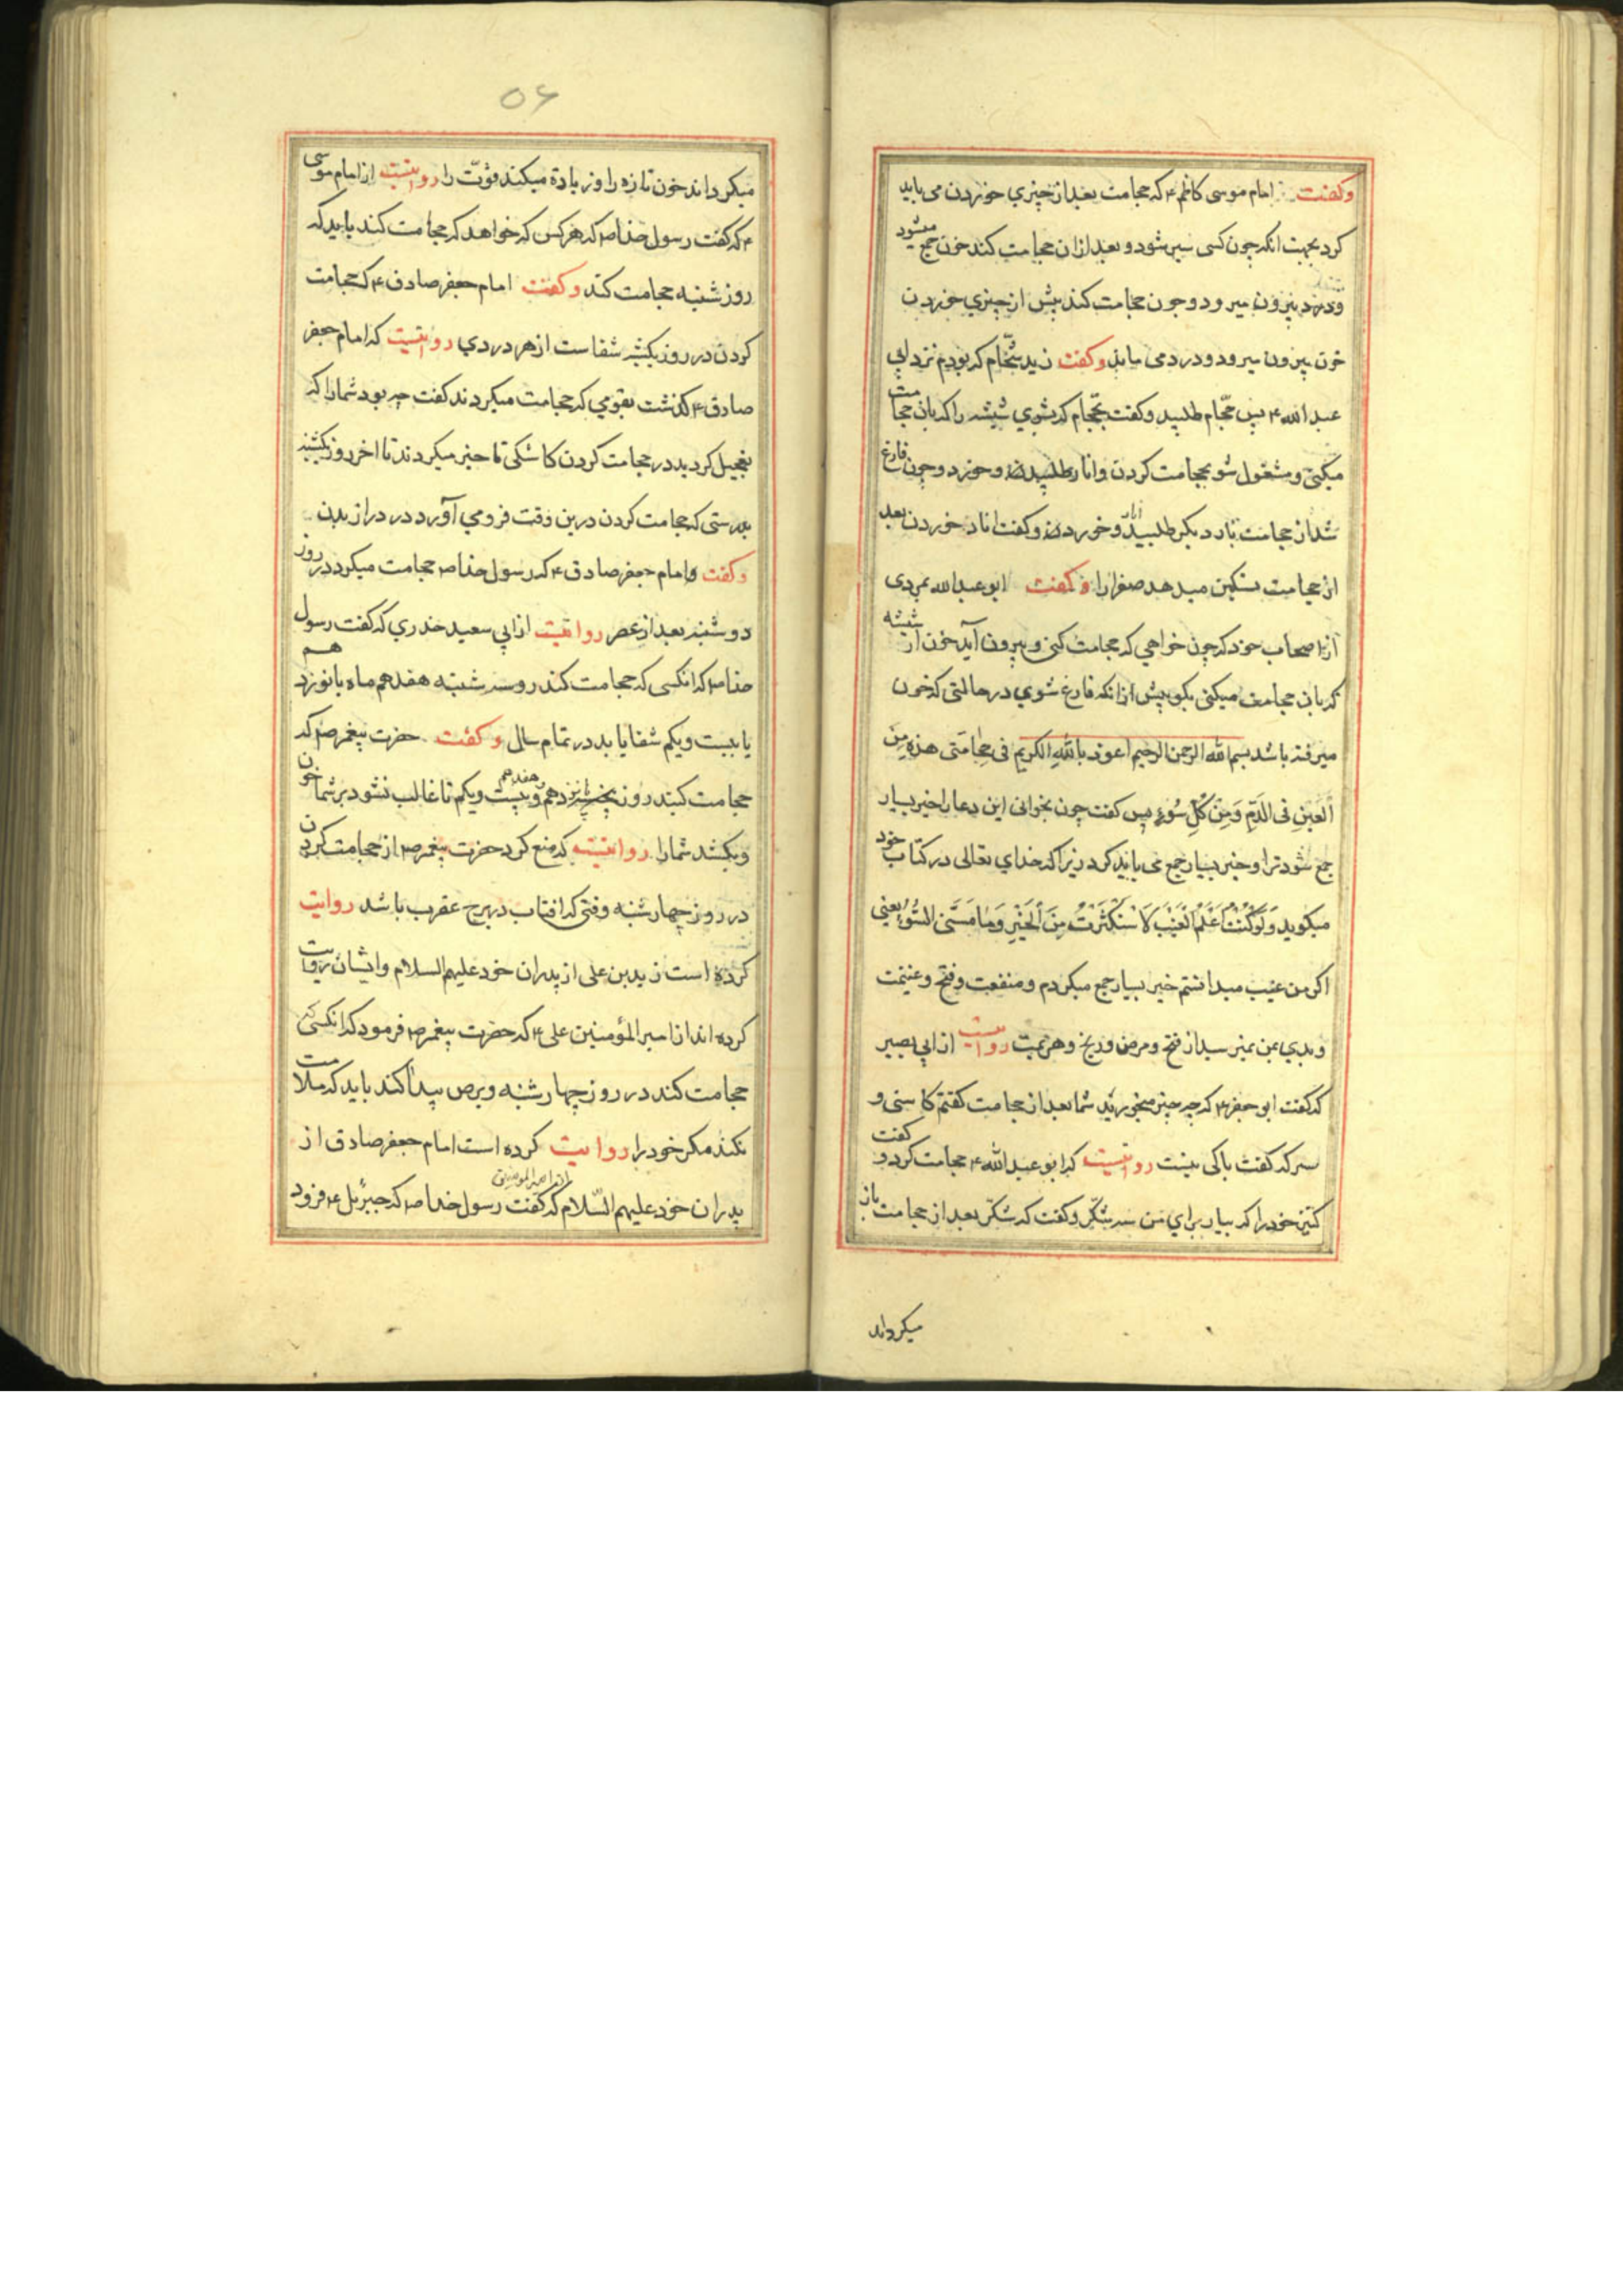 وكفت امام موسى كاظم ۴ كه حجامت بعد از چيزي خوردن مى بايد
كرد بجهت انكه چون كسى سير شود و بعد ازان حجامت كند خون جمع ميشود
ودرد بيرون ميرود و چون حجامت كند پيش از چيزي خوردن
خون بيرون ميرود و درد مى ماند وكفت زيد شحّام كه بودم نزد ابي
عبد الله ۴ پس حجّام طلبيد وكفت بحجّام كه بشوي شيشه را كه بان حجامت
ميكنى و مشغول شو بحجامت كردن وانار طلبيد و خورد و چون فارغ
شد از حجامت بار ديكر انار طلبيد و خورد وكفت انار خوردن بعد
از حجامت تسكين ميدهد صفرا را وكفت ابو عبد الله بمردى
از اصحاب خود كه چون خواهي كه حجامت كنى و بيرون آيد خون از شيشه
كه بان حجامت ميكنى بكو پيش از انكه فارغ شوي در حالتى كه خون
ميرفته باشد بسم الله الرحمن الرحيم اعوذ بالله الكريم فى حِجامَتى هذه مِنَ
العَينِ فى الدَّمِ وَمِنْ كُلِّ سُوءٍ پس كفت چون بخوانى اين دعا را خير بسيار
جمع شود ترا و خير بسيار جمع مى بايد كرد زيرا كه خداي تعالى در كتاب خود
ميكويد وَلَوْ كُنْتُ اَعْلَمُ الْغَيْبَ لَاسْتَكْثَرْتُ مِنَ الْخَيْرِ وَمَا مَسَّنِىَ السُّوُءُ يعني
اكر من غيب ميدانستم خير بسيار جمع ميكردم و منفعت و فتح و غنيمت
و بدي بمن نميرسيد از فتح و مرض و رنج و هزيمت روايتست از ابي بصير
كه كفت ابو جعفر ۴ كه چه چيز ميخوريد شما بعد از حجامت كفتم كاسنى و
سركه كفت باكى نيست روايتست كه ابو عبد الله ۴ حجامت كرد و كفت
كنيز خود را كه بيار براي من سه شكّر وكفت كه شكّر بعد از حجامت باز
ميكرداند
۵۶
ميكرداند خون تازه را و زيادة ميكند قوّت را روايتست از امام موسى
۴ كه كفت رسول خدا ص كه هر كس كه خواهد كه حجامت كند بايد كه
روز شنبه حجامت كند وكفت امام جعفر صادق ۴ كه حجامت
كردن در روز يكشنبه شفاست از هر دردي روايتست كه امام جعفر
صادق ۴ كذشت بقومي كه حجامت ميكردند كفت چه بود شما را كه
تعجيل كرديد در حجامت كردن كاشكى تاخير ميكردند تا اخر روز يكشنبه
بدرستى كه حجامت كردن درين وقت فرو مي آورد درد را از بدن
وكفت امام جعفر صادق ۴ كه رسول خدا ص حجامت ميكرد در روز
دوشنبه بعد از عصر روايتست از ابي سعيد خدري كه كفت رسول
خدا ص كه انكسى كه حجامت كند روز سه شنبه هفدهم ماه يا نوزدهم
يا بيست ويكم شفا يابد در تمام سال وكفت حضرت پيغمر ص كه
حجامت كنيد روز پانزدهم و هفدهم و بيست ويكم تا غالب نشود بر شما خون
وبكشد شما را روايتست كه منع كرد حضرت پيغمر ص از حجامت كردن
در روز چهارشنبه وقتى كه افتاب در برج عقرب باشد روايت
كرده است زيد بن على از پدران خود عليهم السلام وايشان روايت
كرده اند از امير المؤمنين على ۴ كه حضرت پيغمر ص فرمود كه انكسى كه
حجامت كند در روز چهارشنبه و برص پيدا كند بايد كه ملامت
نكند مكر خود را روايت كرده است امام جعفر صادق از
پدران خود عليهم السّلام از امير المومنين كه كفت رسول خدا ص كه جبرئيل ۴ فرود